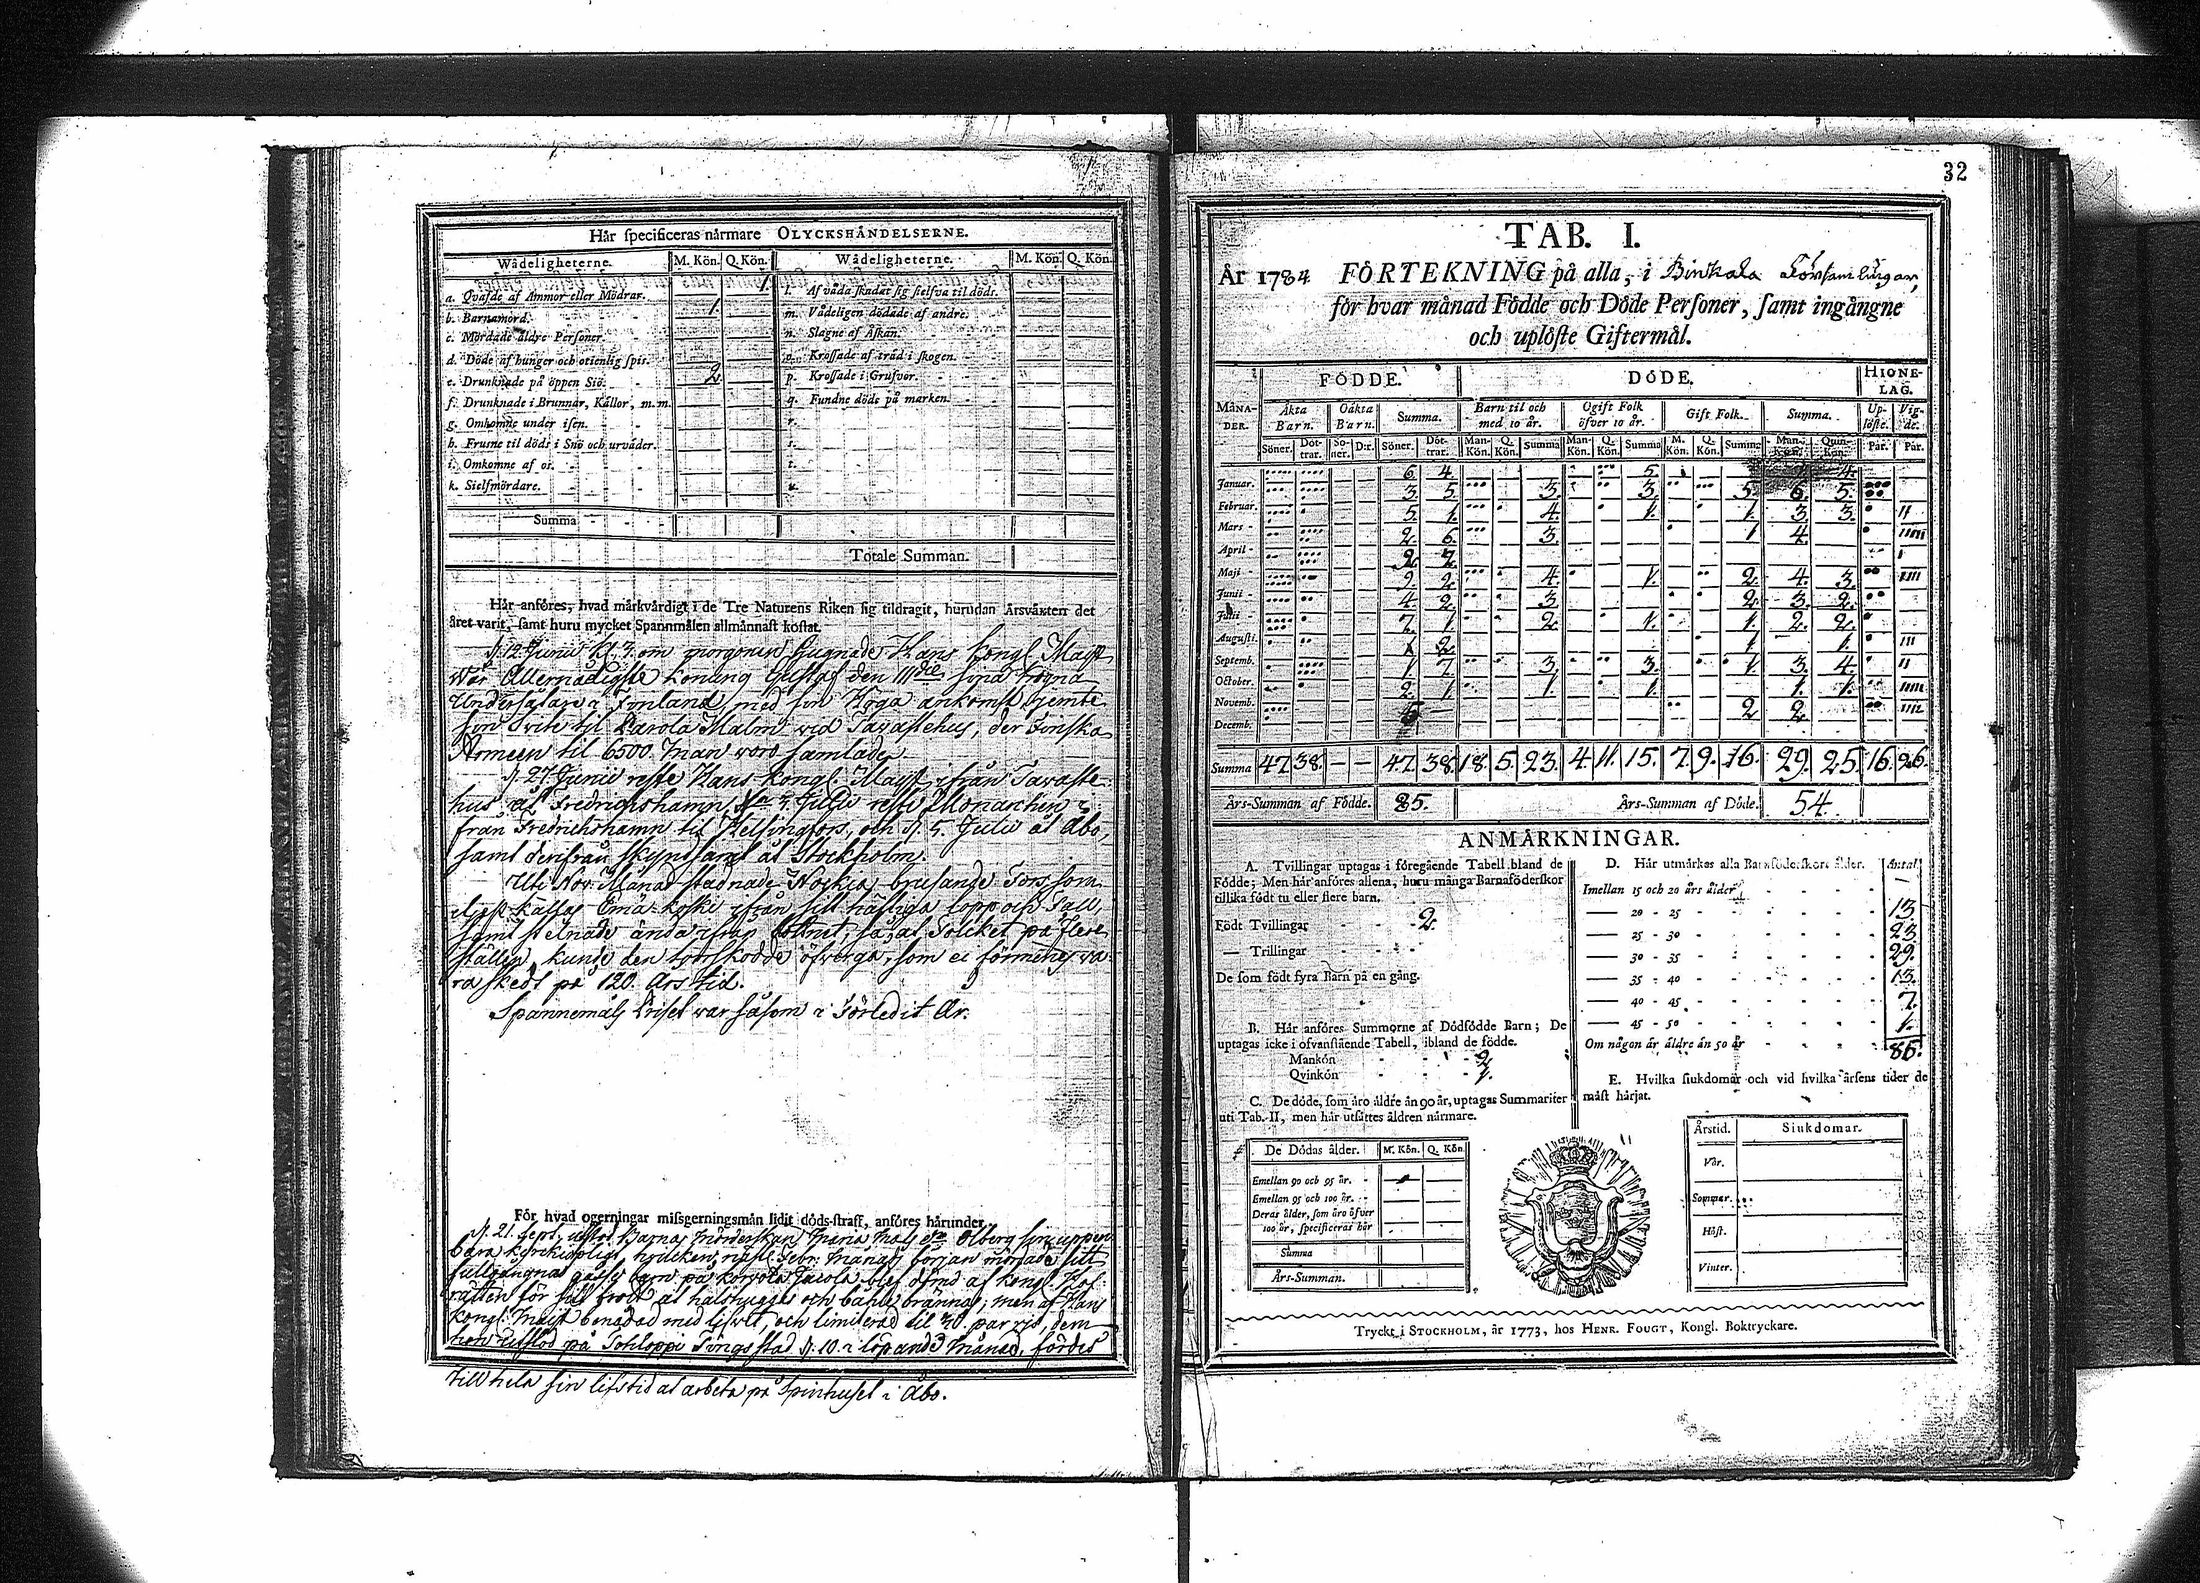 Här specificeras närmare OLYCKSHÄNDELSERNE.
Wådeligheterne. M. Kön. Q. Kön. Wådeligheterne. M. Kön. Q. Kön.
a. Qvafde af Ammor eller Mödrar. 1. l. Af våda skadat sig sielfva til döds.
b. Barnamord. 1. m. Vådeligen dödade af andre.
c. Mördade äldre Personer. n. Slagne af Åskan.
d. Döde af hunger och otienlig spis. o. Krossade af träd i skogen.
e. Drunknade på öppen Siö. 2 p. Krossade i Grufvor.
f. Drunknade i Brunnar, Källor, m.m. q. Fundne döde på marken.
g. Omkomne under isen. r.
h. Frusne til döds i Snö och urväder. s.
i. Omkomne af os. t.
k. Sielfmördare. u.
Summa
Totale Summan.
Här anföres, hvad märkvärdigt i de Tre Naturens Riken sig tildragit, hurudan Årsväxten det
året varit, samt huru mycket Spannmålen allmännast kostat.
d. 12 Junii Kl. 3. om morgonen Hans Kongl. Mayt
Wår Allernådigste Konung Gustaf den IIIdie sina trogna
Undersåtare i Finland med sin Höga ankomst
sin til Parola Malm vid Tavastehus, der Finska
Armeen til 6500. man voro samlade.
d. 27 Junii reste Hans Kongl. Mayt ifrån Tavaste-
hus åt Fredrichshamn, Julii reste Monarchen
från Fredrichshamn til Helsingfors, och d. 5. Julii åt Åbo,
samt derifrån skyndsamt åt Stockholm.
Uti Nov. Månad stadnade Nockia brusande Fors, som
kallas Emä-koski ifrån sitt häftiga lopp och Fall,
samt ända så, at Folcket på flere
ställen kunde den torrskodde öfvergå, som ei förmenes va-
ra skedt på 120. års tid.
Spannemåls Priset var såsom i Förledit År.
För hvad ogerningar missgerningsmän lidit döds-straff, anföres härunder.
d. 21. Sept. Barna Mörderskan Maria Mats dr. Olberg sin uppen-
bara kyrckioplicht, hvilcken nästl. Febr. Månads början mördade sitt
fullgångna gosse barn på blef dömd af Kongl. Hof-
rätten för sitt brott at halshuggas och båhle brännas; men af Hans
Kongl. Mayt benådad med lifvet, och til 30. par ris, dem
hon utstod på Tohloppi Tingsstad d. 10. i löpande månad, fördes
till hela sin lifstid at arbeta på Spinhuset i Åbo.
32
TAB. I.
År 1784 FÖRTEKNING på alla, i Birkala Församlingar,
för hvar månad Födde och Döde Personer, samt ingångne
och uplöste Giftermål.
MÅNA-DER. FÖDDE. DÖDE. HIONE-LAG.
Äkta Barn. Oäkta Barn. Summa. Barn til och med 10 år. Ogift Folk öfver 10 år. Gift Folk. Summa. Up-löste. Vig-de.
Söner. Döt-trar. So-ner. D:r. Söner. Döt-trar. Man-Kön. Q. Kön. Summa Man-Kön. Q. Kön. Summa M. Kön. Q. Kön. Summa Man-Kön. Quin-Kön. Par. Par.
Januar. 6. 4. 5. 4.
Februar. 3. 5. 3. 3. 5. 6. 5.
Mars 5. 1. 4. 1. 1. 3. 3.
April 2. 6. 3. 1 4.
Maji 2. 2.
Junii 9. 2. 4. 1. 2. 4. 3.
Julii 4. 2. 3. 2. 3. 2.
Augusti. 7. 1. 2. 1. 1. 2. 2.
Septemb. 1. 2. 1 1.
October. 1. 7. 3. 3. 1. 3. 4.
Novemb. 2. 1. 1. 1. 1. 1.
Decemb. 5 2 2
Summa 47. 38. — — 47. 38. 18. 5. 23. 4. 11. 15. 7. 9. 16. 29. 25. 16. 26.
Års-Summan af Födde. 85. Års-Summan af Döde. 54.
ANMÄRKNINGAR.
A. Tvillingar uptagas i föregående Tabell bland de
Födde; Men här anföres allena, huru många Barnaföderskor
tillika födt tu eller flere barn.
Födt Tvillingar 2.
— Trillingar
De som födt fyra Barn på en gång.
B. Här anföres Summorne af Dödfödde Barn; De
uptagas icke i ofvanstående Tabell, ibland de födde.
Mankön 2
Qvinkön 1.
C. De döde, som äro äldre än 90 år, uptagas Summariter
uti Tab. II, men här utsättes åldren närmare.
De Dödas ålder. M. Kön. Q. Kön.
Emellan 90 och 95 år.
Emellan 95 och 100 år.
Deras ålder, som äro öfver
100 år, specificeras här
Summa
Års-Summan.
D. Här utmärkes alla Barnföderskors ålder. Antal
Imellan 15 och 20 års ålder —
— 20 - 25 13.
— 25 - 30 23
— 30 - 35 29.
— 35 - 40 13.
— 40 - 45 7.
— 45 - 50 1.
Om någon är äldre än 50 år
85.
E. Hvilka siukdomar och vid hvilka årsens tider de
mäst härjat.
Årstid. Siukdomar.
Vår.
Sommar.
Höst.
Vinter.
Tryckt i STOCKHOLM, år 1773, hos HENR. FOUGT, Kongl. Boktryckare.